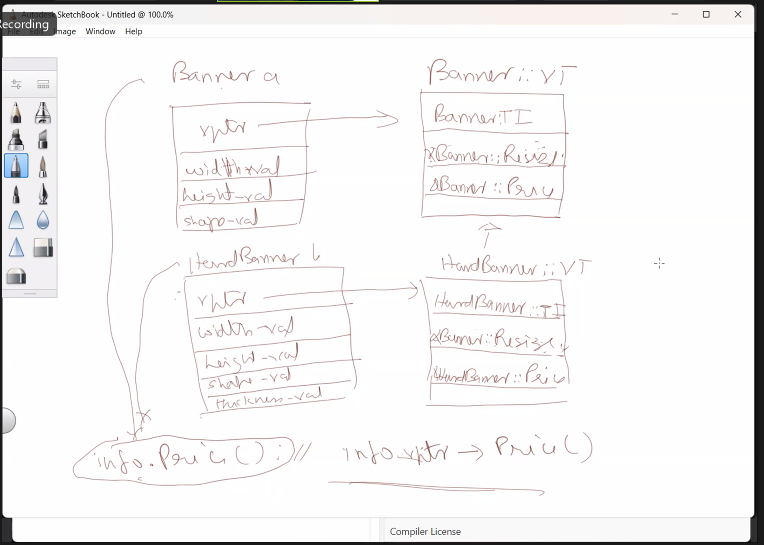 Recording
Autodesk SketchBook - Untitled @ 100.0%
File Edit Image Window Help
Banner a
vptr
width-val
height-val
shape-val
Banner::VT
Banner::TI
&Banner::Resize
&Banner::Price
HardBanner b
vptr
width-val
height-val
shape-val
thickness-val
HardBanner::VT
HardBanner::TI
&Banner::Resize
&HardBanner::Price
info.Price(); // info.vptr → Price()
Compiler License